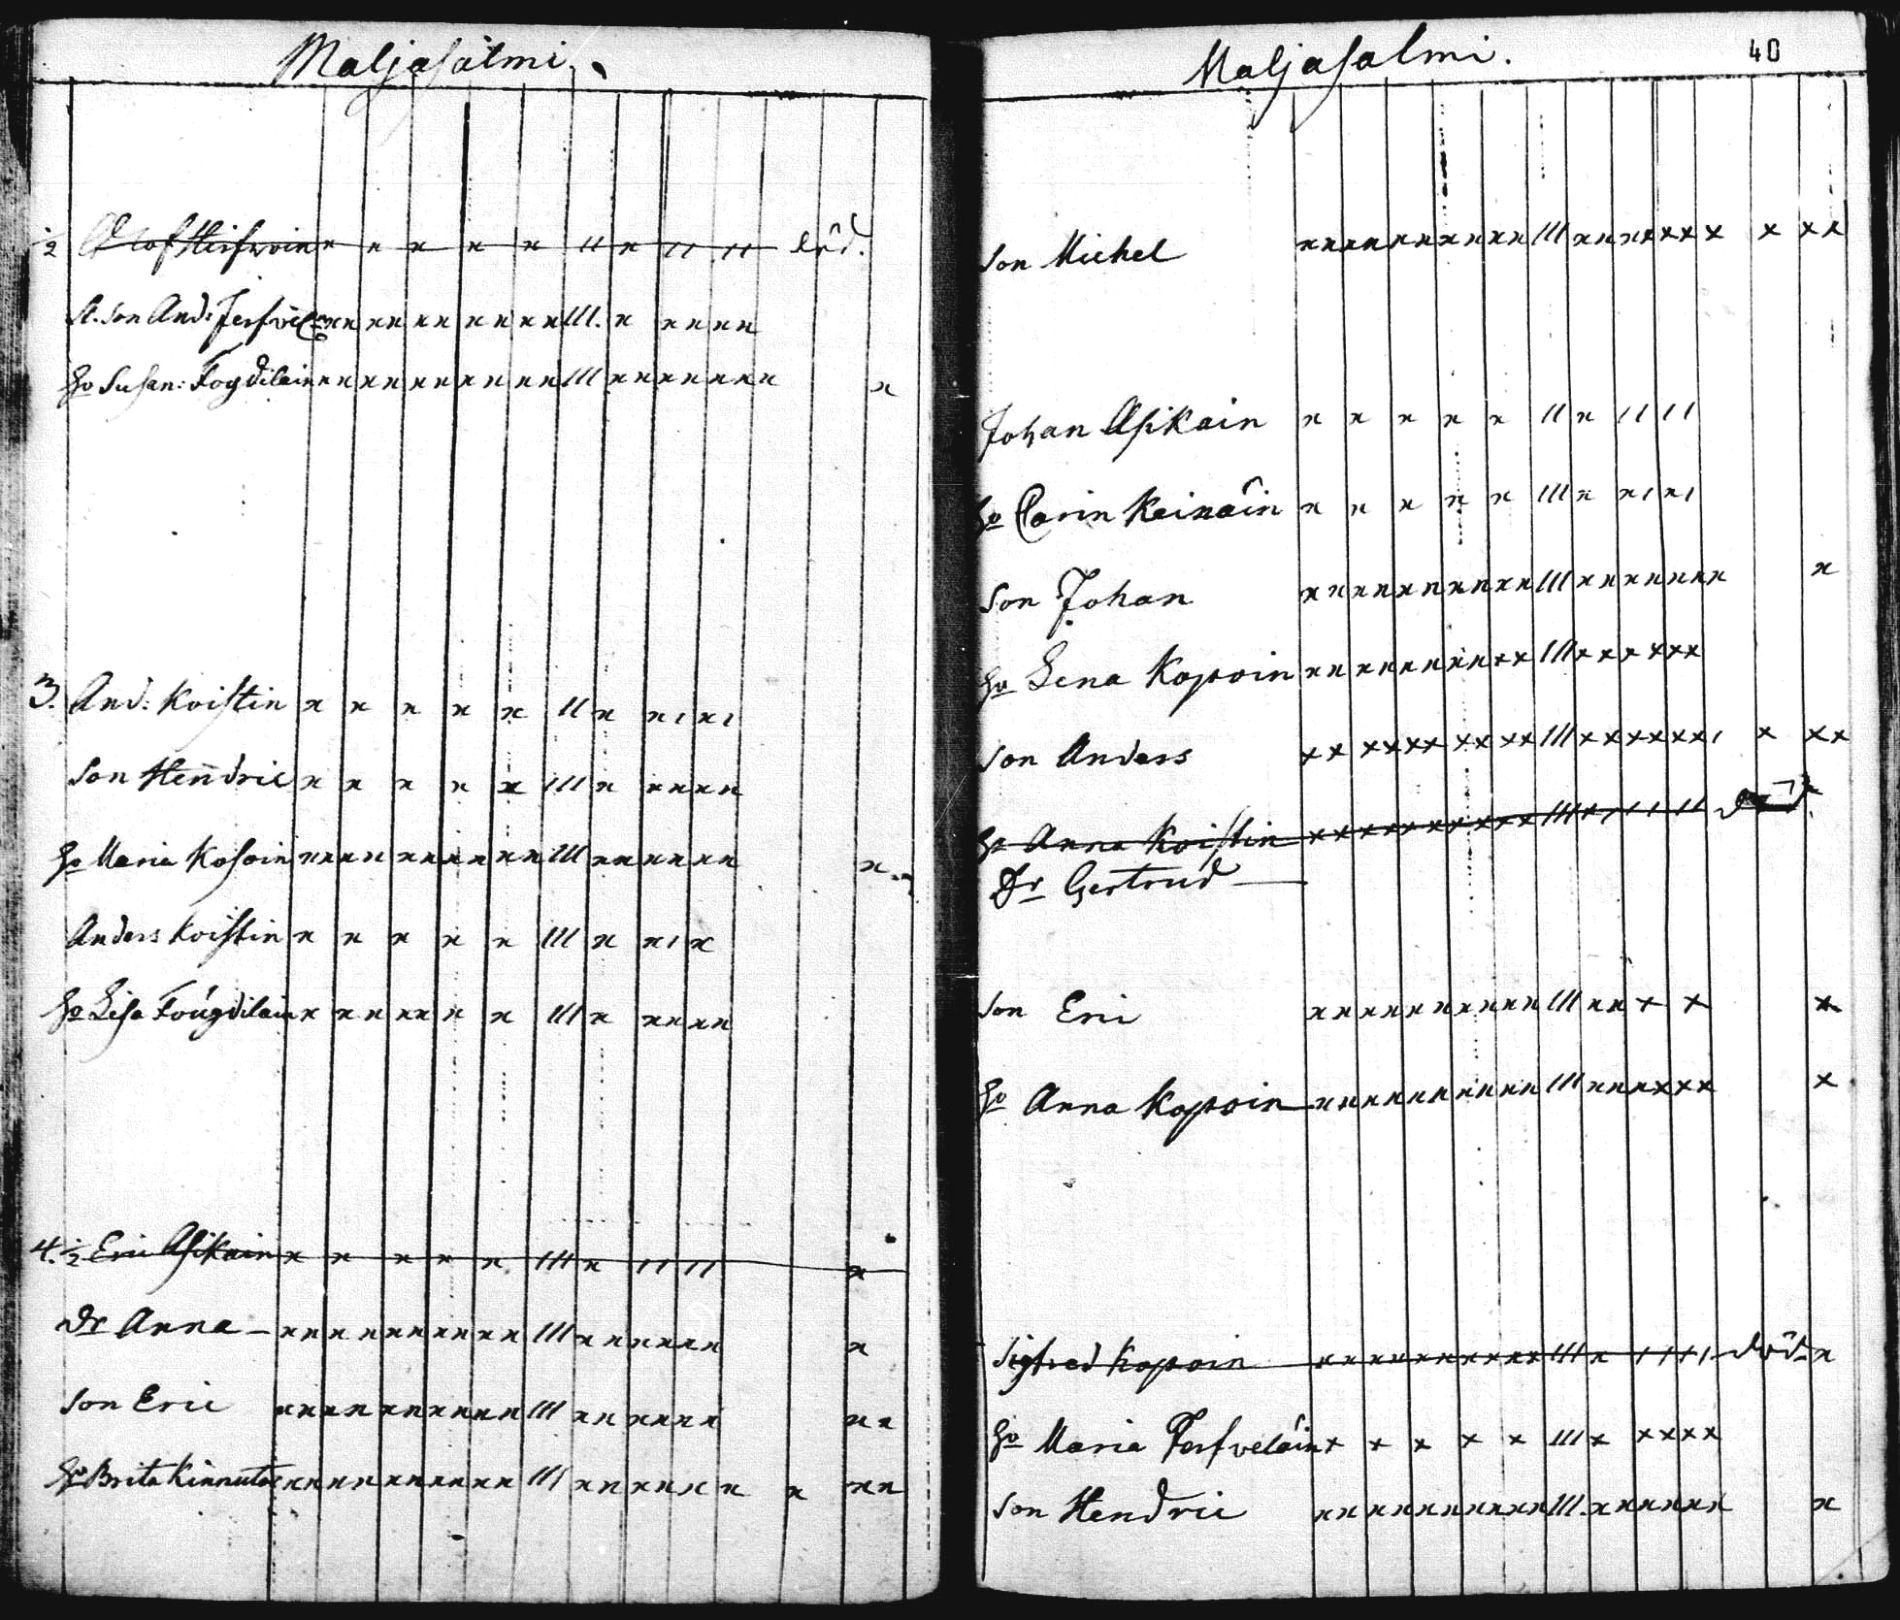 Maljasalmi.
½ Olof Hirfwoin x x x x x 11 x 11 11 död.
St. Son And: Jerfwel xx xx xx xx xx 111. x xx xx
Ho Susan: Fogdilain xx xx xx xx xx 111 xx xx xxx x
3. And: Koistin x x x x x 11 x x1 x1
Son Hendric x x x x x 111 x xx xx
Ho Maria Kosoin xx xx xx xx xx 111 xx xx xx x
Anders Koistin x x x x x 111 x x1 x
Ho Lisa Fougdilain x xx xx x x 111 x xx xx
4. ½ Eric Asikain x x x x x 111 x 11 11 x
Dr Anna – xx xx xx xx xx 111 xx xx xx x
Son Eric xx xx xx xx xx 111 xx xx xx xx
Ho Brita Kinnuta xx xx xx xx xx 111 xx xx xx x x xx
Maljasalmi. 40
Son Michel xx xx xx xx xx 111 xx xx xx x x xx
Johan Asikain x x x x x 11 x 11 11
Ho Carin Keinäin x x x x x 111 x x1 x1
Son Johan xx xx xx xx xx 111 xx xx xxx x
Ho Lena Kopoin xx xx xx xx xx 111 xx xx xx
Son Anders xx xx xx xx xx 111 xx xx xx1 x xx
Ho Anna Koistin xx xx xx xx xx 111 x1 11 11 död
Dr Gertrud —
Son Eric xx xx xx xx xx 111 xx x x x
Ho Anna Kopoin xx xx xx xx xx 111 xx xx xx x
Sigfred Kopoin xx xx xx xx xx 111 x 11 11 död. x
Ho Maria Jerfveläin x x x x x 111 x xx xx
Son Hendric xx xx xx xx xx 111. xx xx xx x